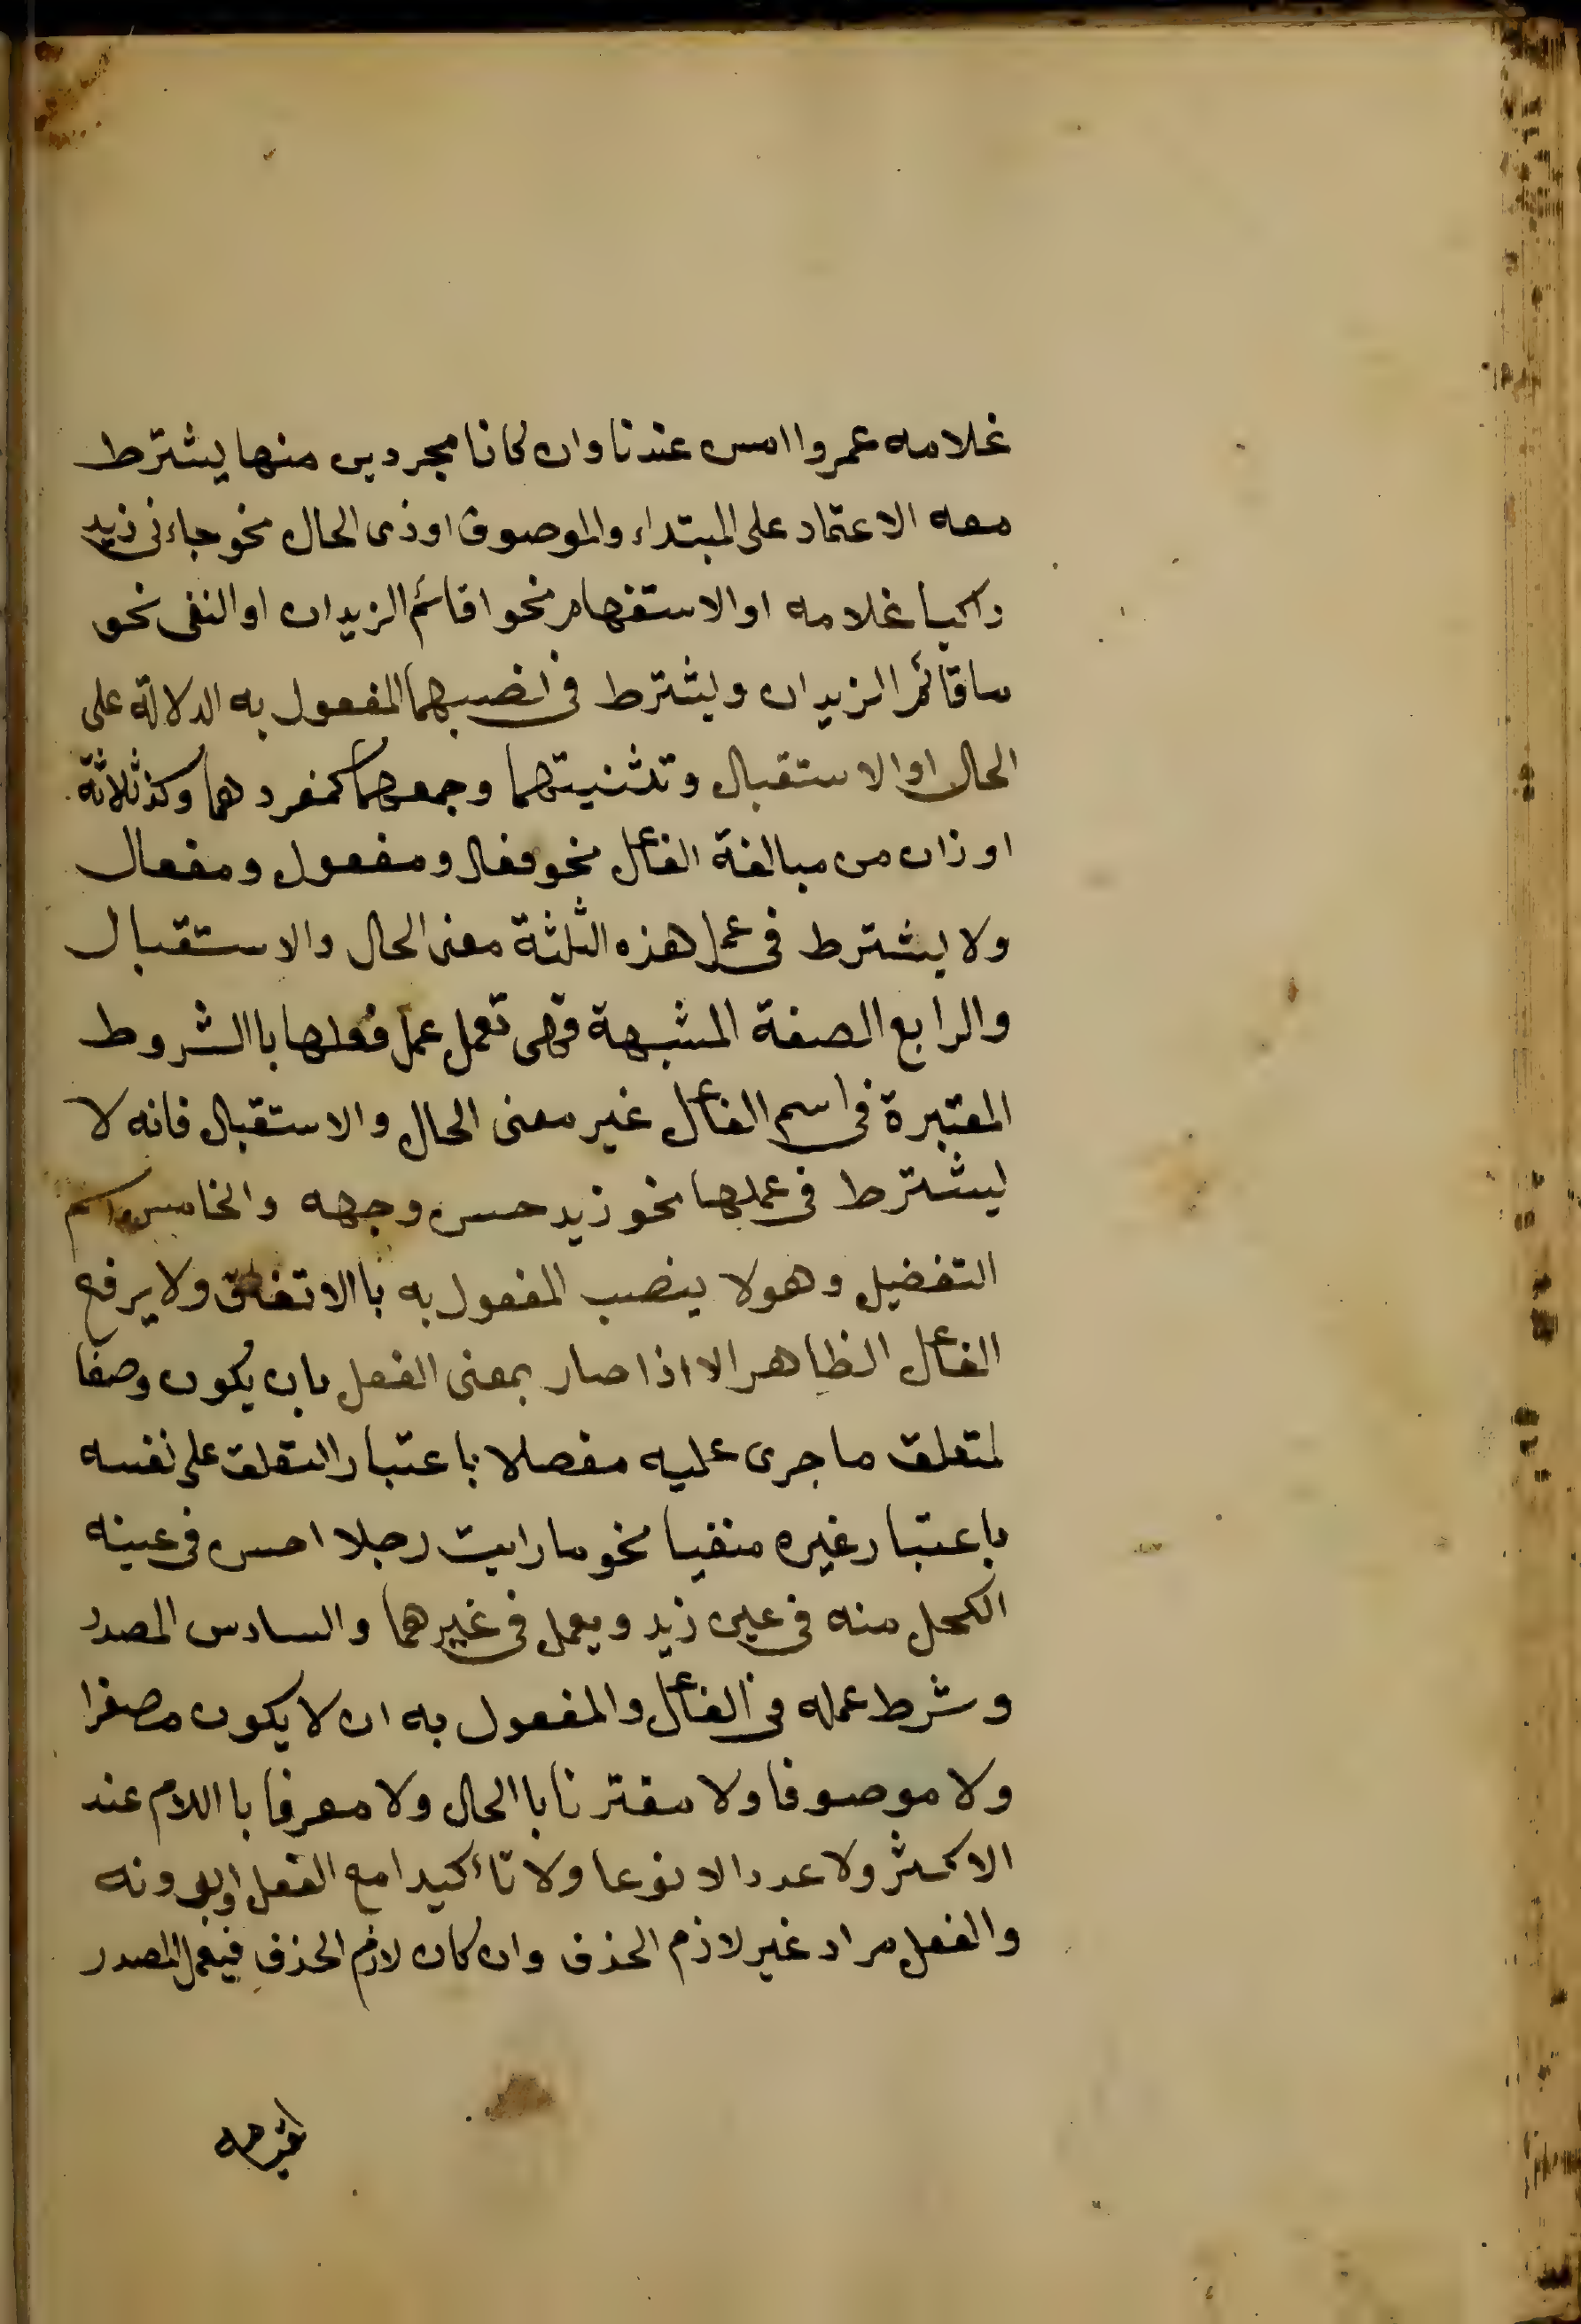 غلامه عمروا امس عندنا وان كانا مجردين منها يشترط
معه الاعتماد على المبتداء والموصوف اوذى الحال نحو جاءنى زيد
راكبا غلامه او الاستفهام نحو اقائم الزيدان او النفى نحو
ما قائم الزيدان ويشترط فى نصبهما المفعول به الدلالة على
الحال او الاستقبال وتثنيتهما وجمعهما كمفردهما وكذ ثلاثة
اوزان من مبالغة الفاعل نحو فعال ومفعول ومفعال
ولا يشترط فى عمل هذه الثلثة معنى الحال والاستقبال
والرابع الصفة المشبهة فهى تعمل عمل فعلها باالشروط
المعتبرة فى اسم الفاعل غير معنى الحال والاستقبال فانه لا
يشترط فى عملها نحو زيد حسن وجهه والخامس اسم
التفضيل وهو لا ينصب المفعول به باالاتفاق ولا يرفع
الفاعل الظاهر الا اذا صار بمعنى الفعل بان يكون وصفا
لمتعلق ما جرى عليه مفصلا باعتبار التعلق على نفسه
باعتبار غيره منفيا نحو ما رايت رجلا احسن فى عينه
الكحل منه فى عين زيد ويعمل فى غيرهما والسادس المصدر
وشرط عمله فى الفاعل والمفعول به ان لا يكون مصغرا
ولا موصوفا ولا مقترنا باالحال ولا معرفا بااللام عند
الاكثر ولا عددا لا نوعا ولا تاءكيدا مع الفعل او بدونه
والفعل مراد غير لازم الحذف وان كان لازم الحذف فيعمل المصدر